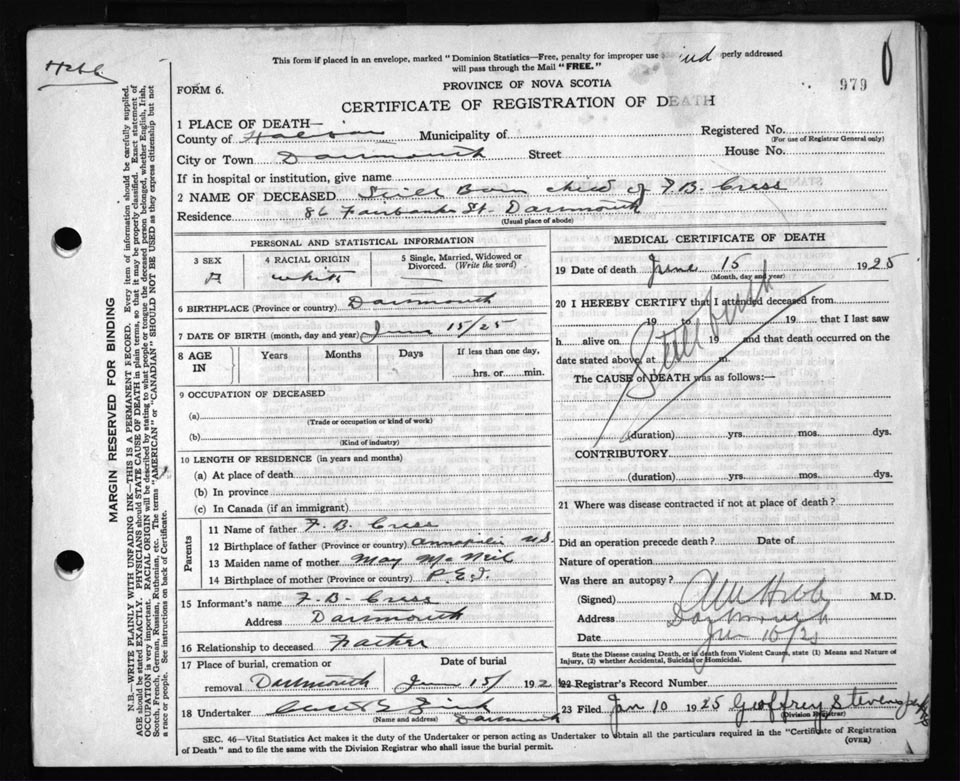 This form if placed in an envelope, marked "Dominion Statistics—Free, penalty for improper use perly addressed
will pass through the Mail "FREE."
FORM 6.
PROVINCE OF NOVA SCOTIA
979
CERTIFICATE OF REGISTRATION OF DEATH
1 PLACE OF DEATH—
County of Municipality of Registered No.
(For use of Registrar General only)
City or Town Dartmouth Street House No.
If in hospital or institution, give name
2 NAME OF DECEASED Still Born child of F. B. Cress
Residence 86 Fairbanks St. Dartmouth
(Usual place of abode)
PERSONAL AND STATISTICAL INFORMATION
3 SEX 4 RACIAL ORIGIN 5 Single, Married, Widowed or Divorced. (Write the word)
white
6 BIRTHPLACE (Province or country) Dartmouth
7 DATE OF BIRTH (month, day and year) 15/25
8 AGE IN Years Months Days If less than one day,
hrs. or min.
9 OCCUPATION OF DECEASED
(a)
(Trade or occupation or kind of work)
(b)
(Kind of industry)
10 LENGTH OF RESIDENCE (in years and months)
(a) At place of death
(b) In province
(c) In Canada (if an immigrant)
Parents
11 Name of father F. B. Cress
12 Birthplace of father (Province or country) Annapolis N.S.
13 Maiden name of mother May McNeil
14 Birthplace of mother (Province or country) P.E.I.
15 Informant's name F. B. Cress
Address Dartmouth
16 Relationship to deceased Father
17 Place of burial, cremation or Date of burial
removal Dartmouth 15/ 192
18 Undertaker Dartmouth
(Name and address)
MEDICAL CERTIFICATE OF DEATH
19 Date of death 15 1925
(Month, day and year)
20 I HEREBY CERTIFY that I attended deceased from
19 to 19 that I last saw
h alive on 19 and that death occurred on the
date stated above at m.
Still birth
The CAUSE of DEATH was as follows:—
(duration) yrs. mos. dys.
CONTRIBUTORY
(duration) yrs. mos. dys.
21 Where was disease contracted if not at place of death?
Did an operation precede death? Date of
Nature of operation
Was there an autopsy?
(Signed) M.D.
Address Dartmouth
Date
State the Disease causing Death, or in death from Violent Causes, state (1) Means and Nature of
Injury, (2) whether Accidental, Suicidal or Homicidal.
22 Registrar's Record Number
23 Filed Jan 10 1925 Geoffrey Stevens
(Division Registrar)
SEC. 46—Vital Statistics Act makes it the duty of the Undertaker or person acting as Undertaker to obtain all the particulars required in the "Certificate of Registration
of Death" and to file the same with the Division Registrar who shall issue the burial permit.
(OVER)
MARGIN RESERVED FOR BINDING
N.B.—WRITE PLAINLY WITH UNFADING INK—THIS IS A PERMANENT RECORD. Every item of information should be carefully supplied.
AGE should be stated EXACTLY. PHYSICIANS should STATE CAUSE OF DEATH in plain terms, so that it may be properly classified. Exact statement of
OCCUPATION is very important. RACIAL ORIGIN will be described by stating to what people or tongue the deceased person belonged, whether English, Irish,
Scotch, French, German, Russian, Ruthenian, etc. The terms "AMERICAN" or "CANADIAN" SHOULD NOT BE USED as they express citizenship but not
a race or people. See instructions on back of Certificate.